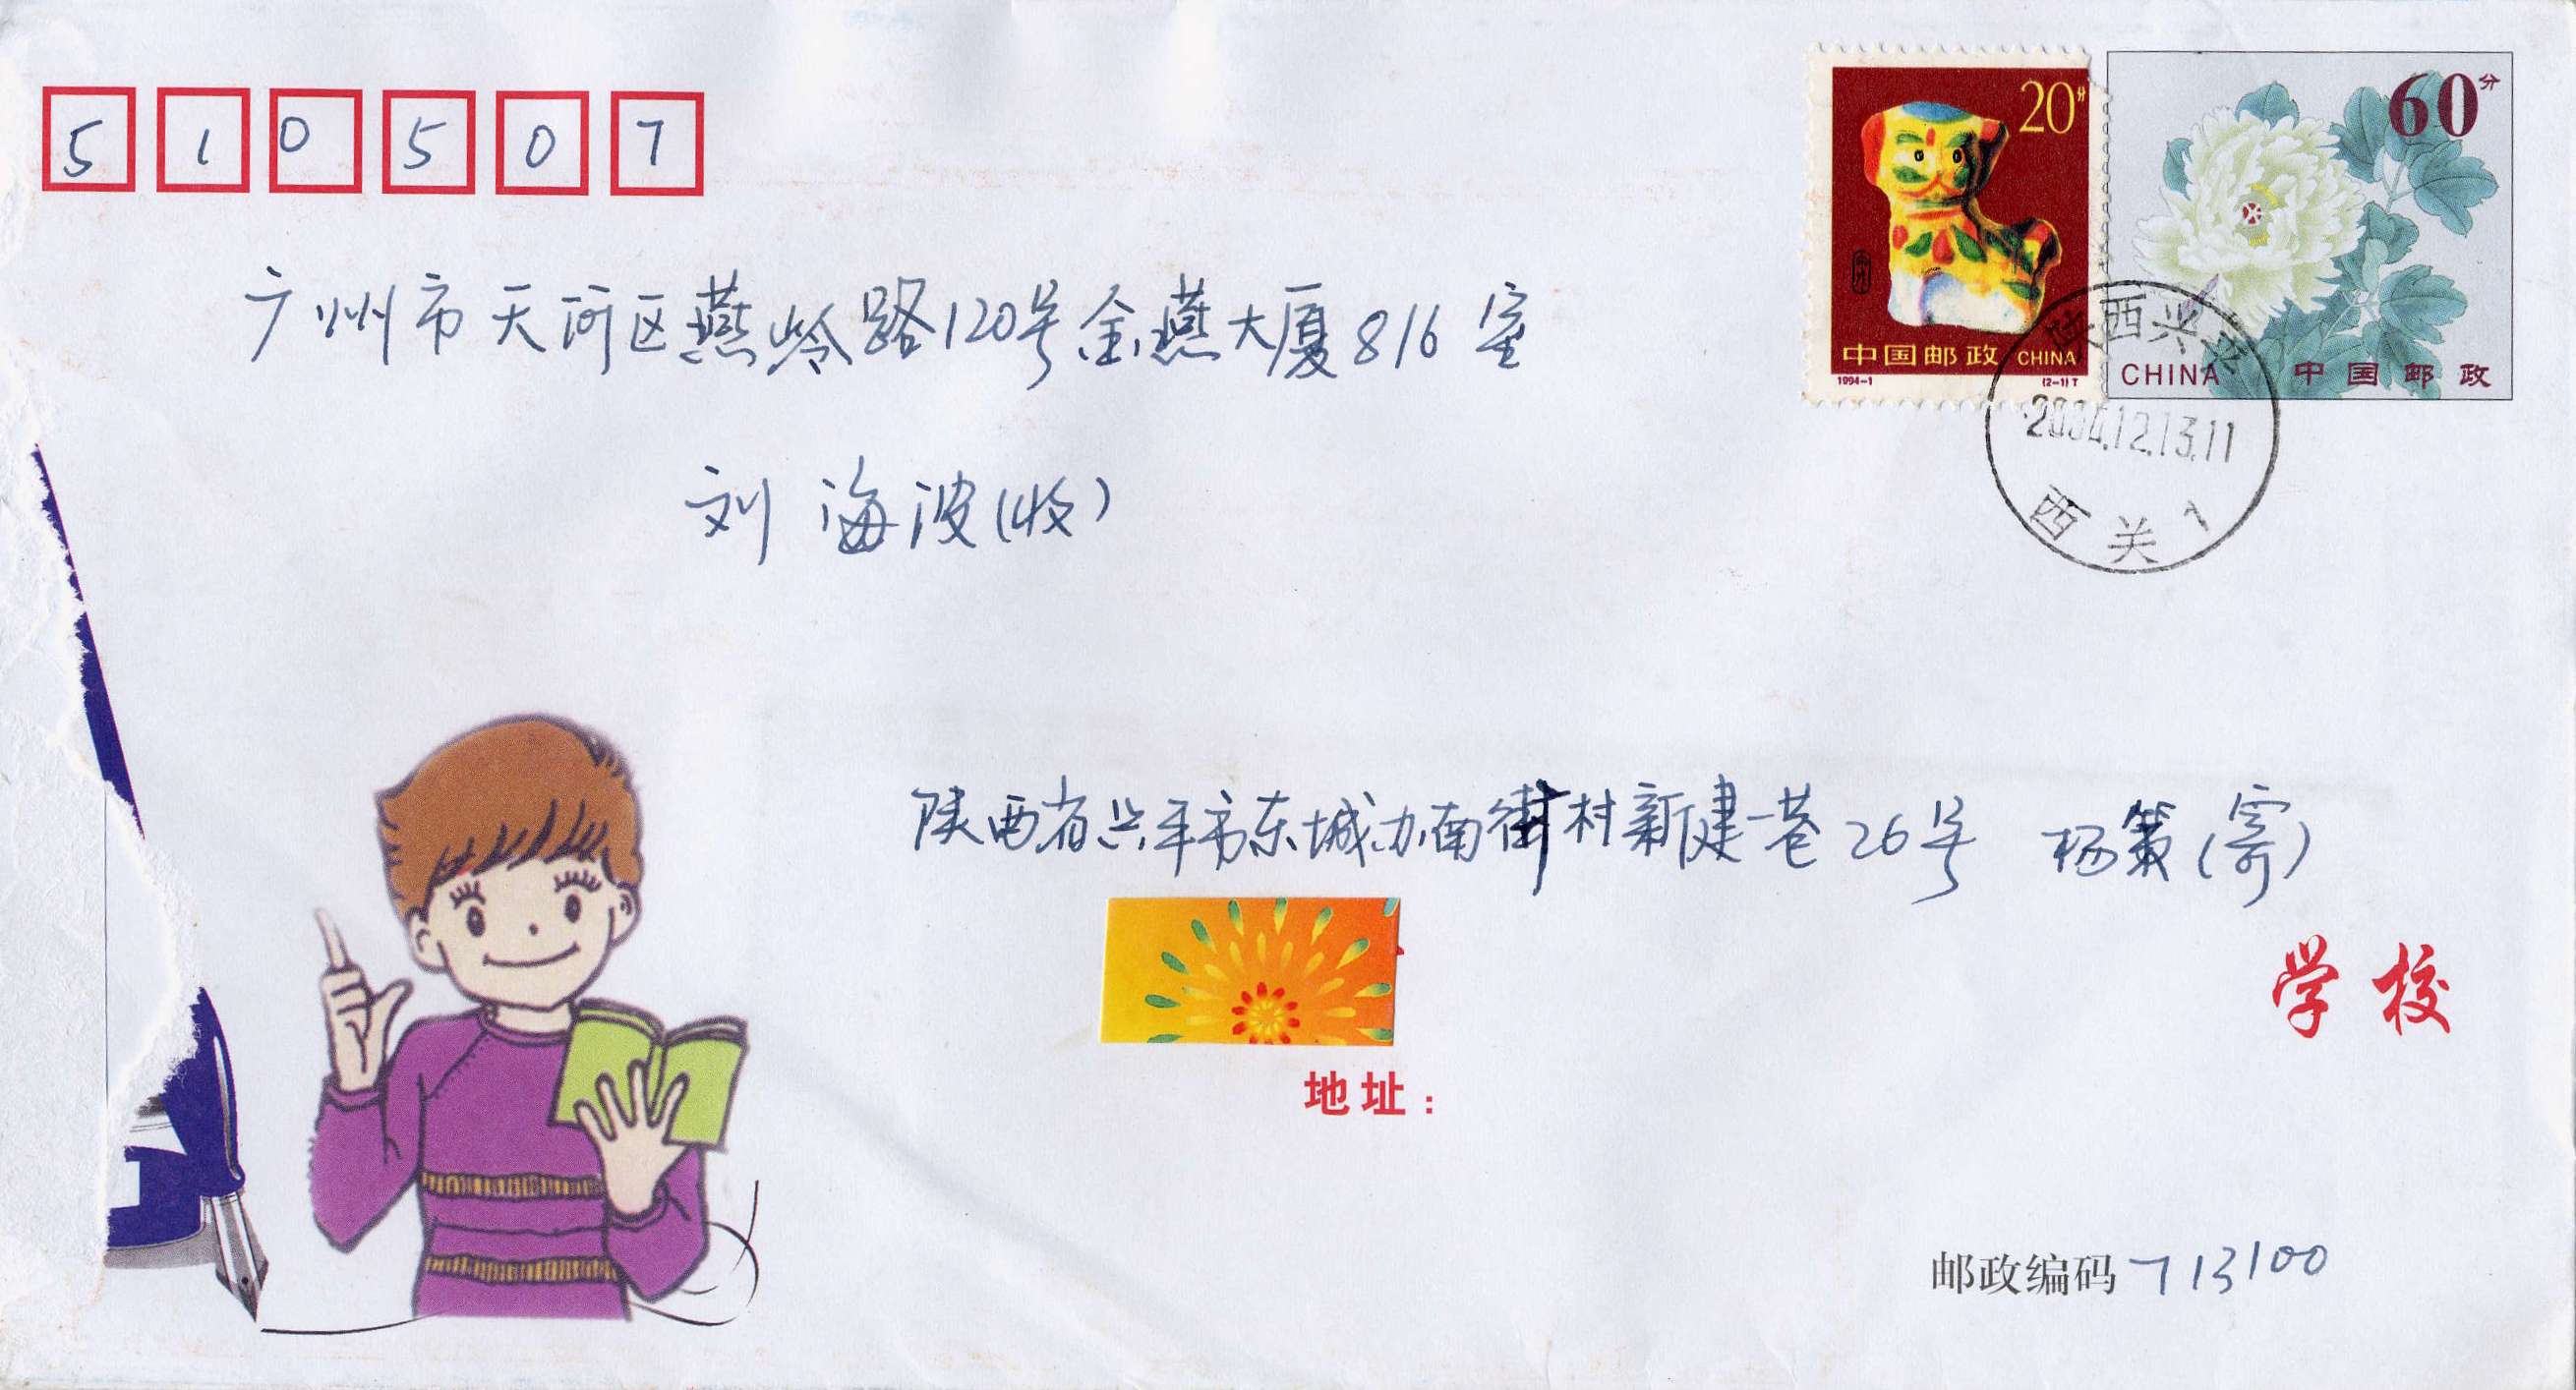 510507
20分
60分
广州市天河区燕岭路120号金燕大厦816室
中国邮政 CHINA
1994-1
(2-1)T
CHINA 中国邮政
陕西兴平
2004.12.13.11
西关1
刘海波(收)
陕西省兴平市东城办南街村新建一巷26号 杨策(寄)
学校
地址:
邮政编码713100